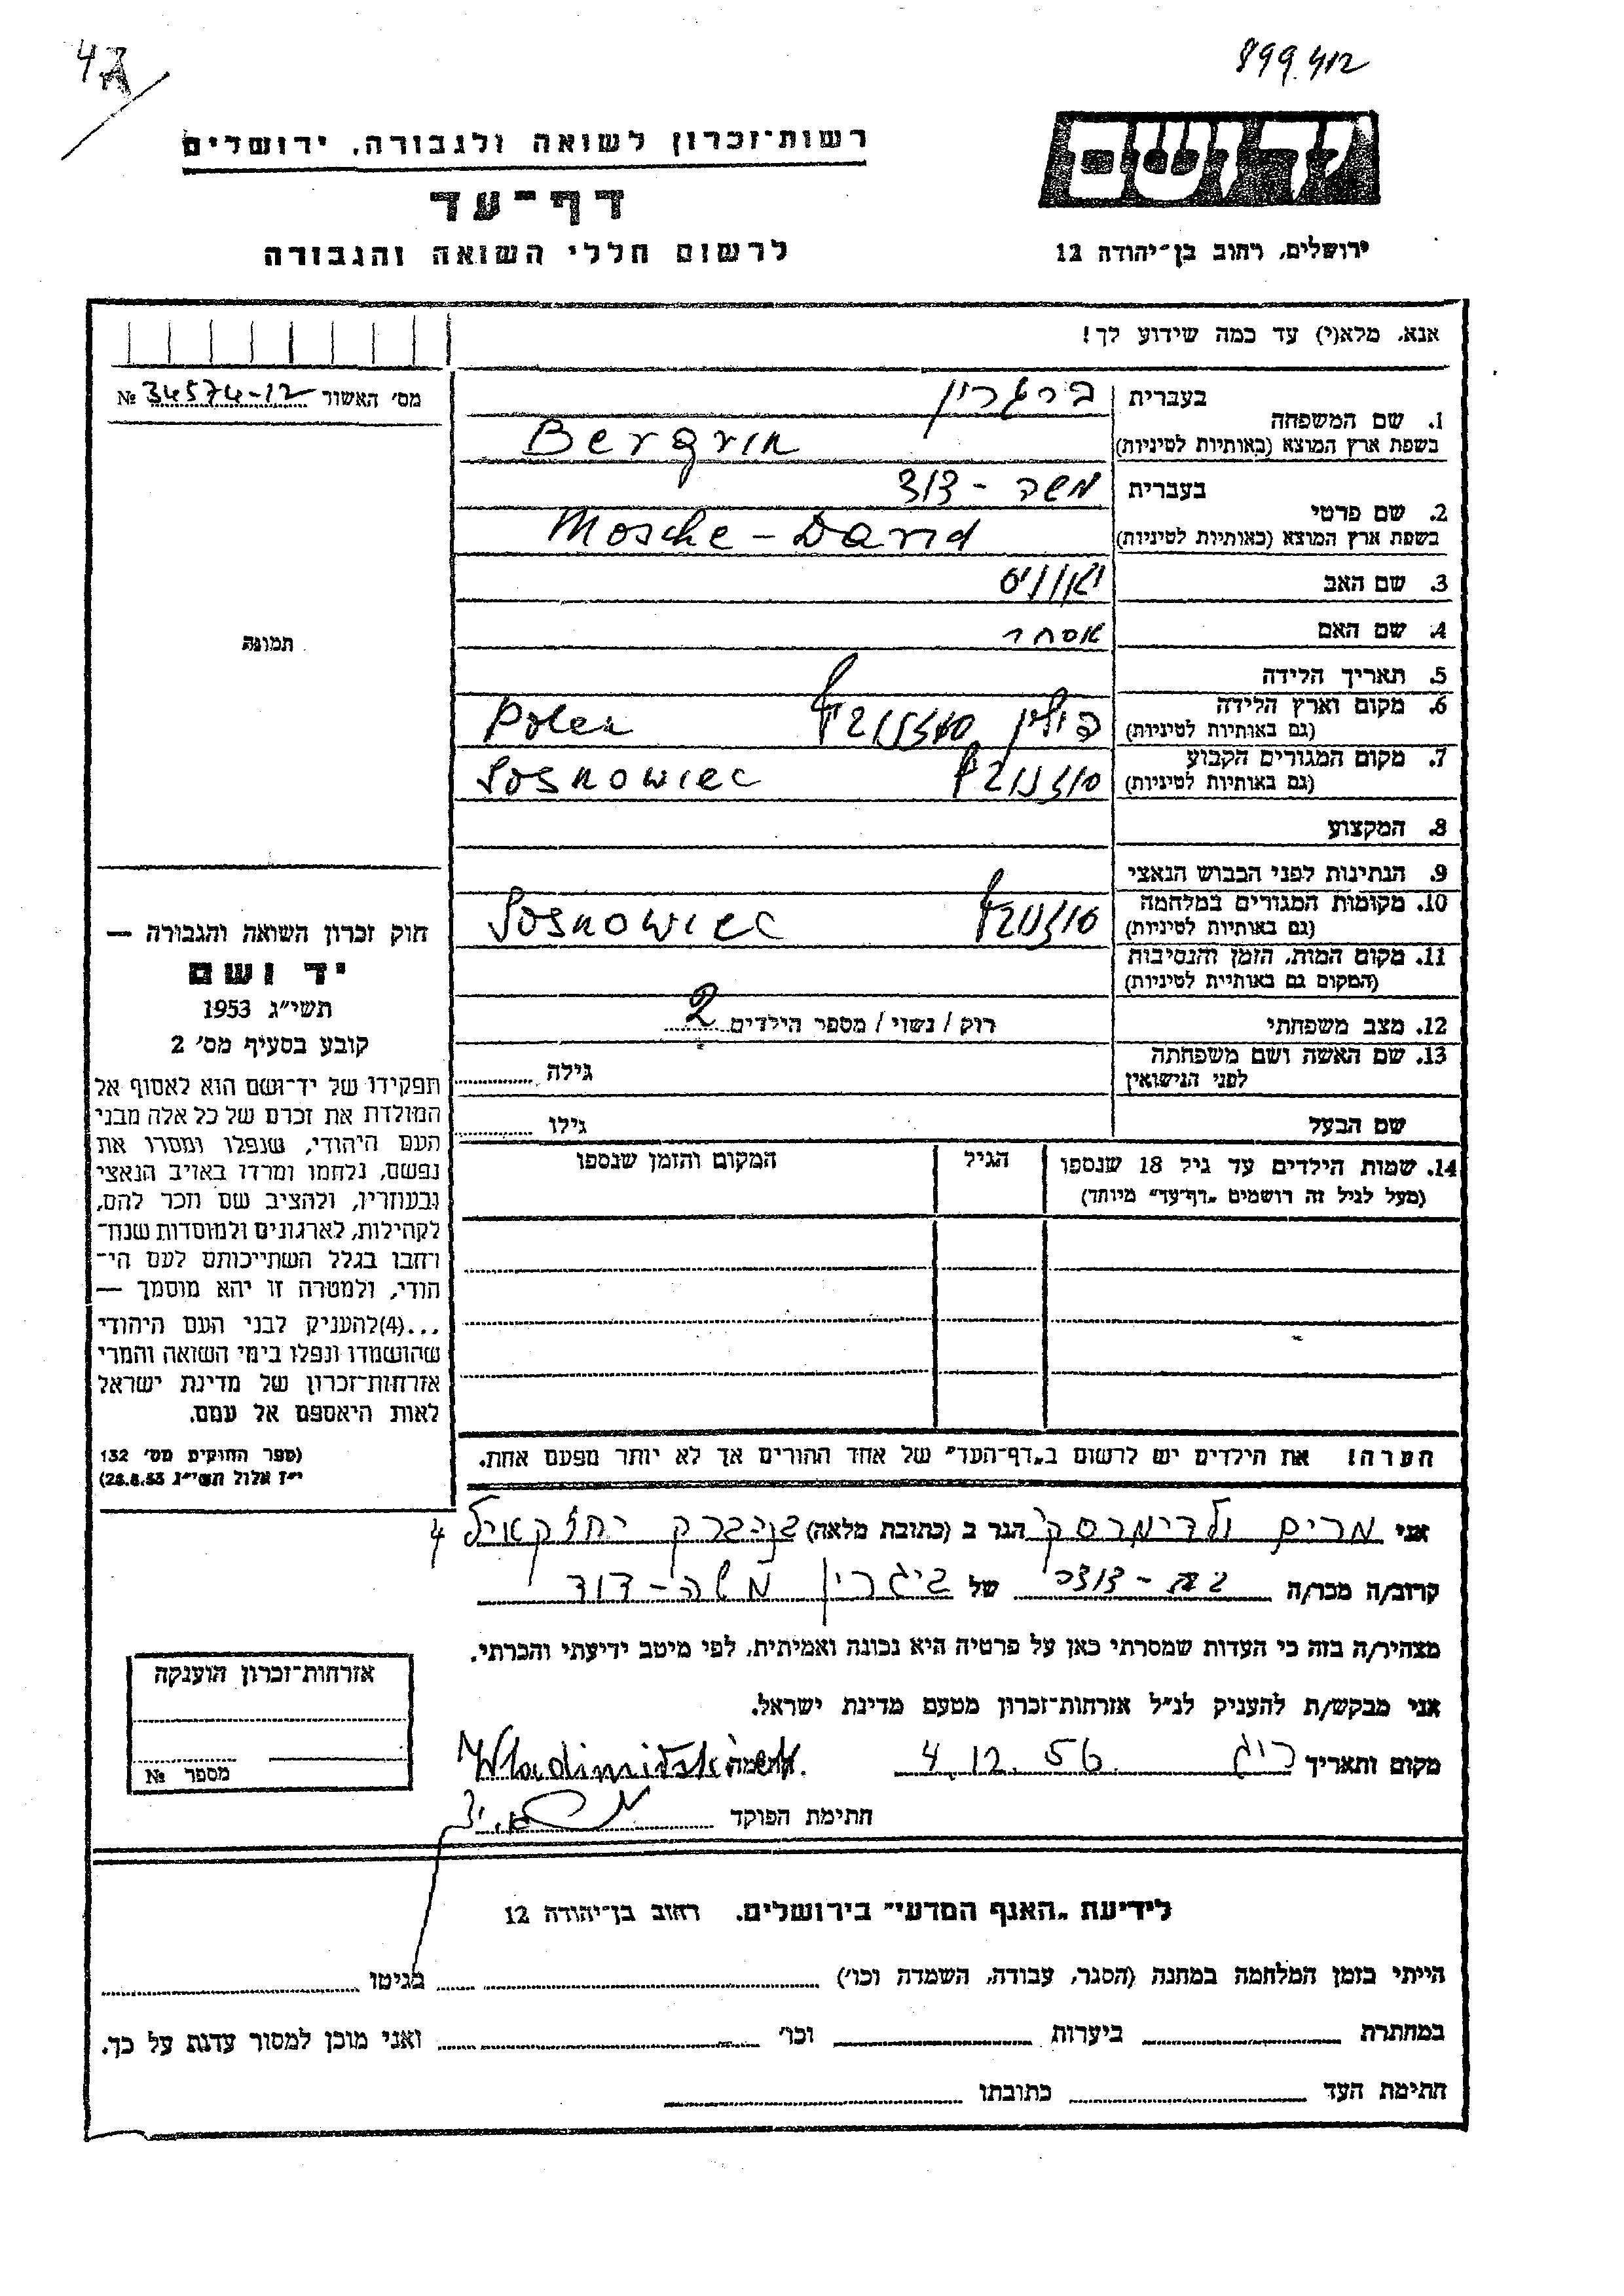 47
899.412
רשות־זכרון לשואה ולגבורה, ירושלים
דף־עד
לרשום חללי השואה והגבורה
ידושם
ירושלים, רחוב בן־יהודה 12
אנא, מלא(י) עד כמה שידוע לך!
מס׳ האשור 34574-12 №
תמונה
1. שם המשפחה
בעברית
בשפת ארץ המוצא (באותיות לטיניות)
Bergrin
2. שם פרטי
בעברית משה - דוד
בשפת ארץ המוצא (באותיות לטיניות) Mosche - David
3. שם האב
4. שם האם אסתר
5. תאריך הלידה
6. מקום וארץ הלידה
(גם באותיות לטיניות) פולין Polen
7. מקום המגורים הקבוע
(גם באותיות לטיניות) Sosnowiec
8. המקצוע
9. הנתינות לפני הכבוש הנאצי
10. מקומות המגורים במלחמה
(גם באותיות לטיניות) Sosnowiec
11. מקום המות, הזמן והנסיבות
(המקום גם באותיות לטיניות)
12. מצב משפחתי רוק / נשוי / מספר הילדים 2
13. שם האשה ושם משפחתה
לפני הנישואין גילה
שם הבעל גילו
14. שמות הילדים עד גיל 18 שנספו
(מעל לגיל זה רושמים „דף־עד״ מיוחד)
הגיל
המקום והזמן שנספו
חוק זכרון השואה והגבורה —
יד ושם
תשי״ג 1953
קובע בסעיף מס׳ 2
תפקידו של יד־ושם הוא לאסוף אל
המולדת את זכרם של כל אלה מבני
העם היהודי, שנפלו ומסרו את
נפשם, נלחמו ומרדו באויב הנאצי
ובעוזריו, ולהציב שם וזכר להם,
לקהילות, לארגונים ולמוסדות שנח־
רחבו בגלל השתייכותם לעם הי־
הודי, ולמטרה זו יהא מוסמך —
...(4)להעניק לבני העם היהודי
שהושמדו ונפלו בימי השואה והמרי
אזרחות־זכרון של מדינת ישראל
לאות היאספם אל עמם.
(ספר החוקים מס׳ 132
י״ז אלול תשי״ג 28.8.53)
הערה: את הילדים יש לרשום ב„דף־העד״ של אחד ההורים אך לא יותר מפעם אחת.
אני מרים ולדימרסקי הגר ב (כתובת מלאה) בני-ברק יחזקאל 4
קרוב/ה מכר/ה בת - דודה של ביגרין משה - דוד
מצהיר/ה בזה כי העדות שמסרתי כאן על פרטיה היא נכונה ואמיתית, לפי מיטב ידיעתי והכרתי.
אני מבקש/ת להעניק לנ״ל אזרחות־זכרון מטעם מדינת ישראל.
מקום ותאריך 4.12.56 חתימה
חתימת הפוקד
אזרחות־זכרון הוענקה
מספר №
לידיעת „האגף המדעי״ בירושלים. רחוב בן־יהודה 12
הייתי בזמן המלחמה במחנה (הסגר, עבודה, השמדה וכו׳) בגיטו
במחתרת ביערות וכו׳ ואני מוכן למסור עדות על כך.
חתימת העד כתובתו